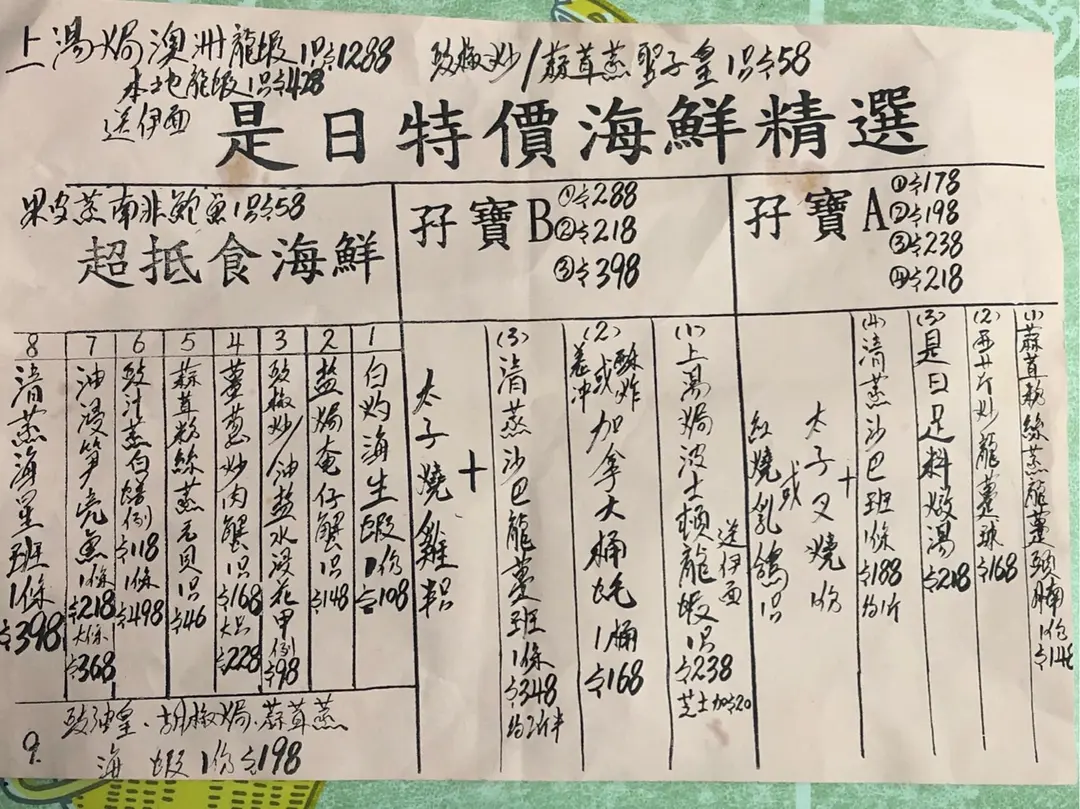 上湯焗澳洲龍蝦1只$1288
本地龍蝦1只$428
送伊面
豉椒炒/蒜茸蒸聖子皇1只$58
是日特價海鮮精選
孖寶A
①$178
②$198
③$238
④$218
(1)蒜茸粉絲蒸龍躉頭腩1份$148
(2)西芹炒龍躉球$168
(3)是日足料燉湯$218
(4)清蒸沙巴班1條$188約1斤
+
太子叉燒1份
或
紅燒乳鴿1只
孖寶B
①$288
②$218
③$398
(1)上湯焗波士頓龍蝦1只$238
送伊面
芝士加$20
(2)酥炸或羌沖加拿大桶蚝1桶$168
(3)清蒸沙巴龍躉班1條$348約2斤半
+
太子燒雞半只
果皮蒸南非鮑魚1只$58
超抵食海鮮
1白灼海生蝦1份$108
2鹽焗奄仔蟹1只$148
3豉椒炒/油鹽水浸花甲例$98
4薑蔥炒肉蟹1只$168大只$228
5蒜茸粉絲蒸元貝1只$46
6豉汁蒸白鱔例$118 1條$498
7油浸筍壳魚1條$218大條$368
8清蒸海星班1條$398
9.豉油皇.胡椒焗.蒜茸蒸
海蝦1份$198